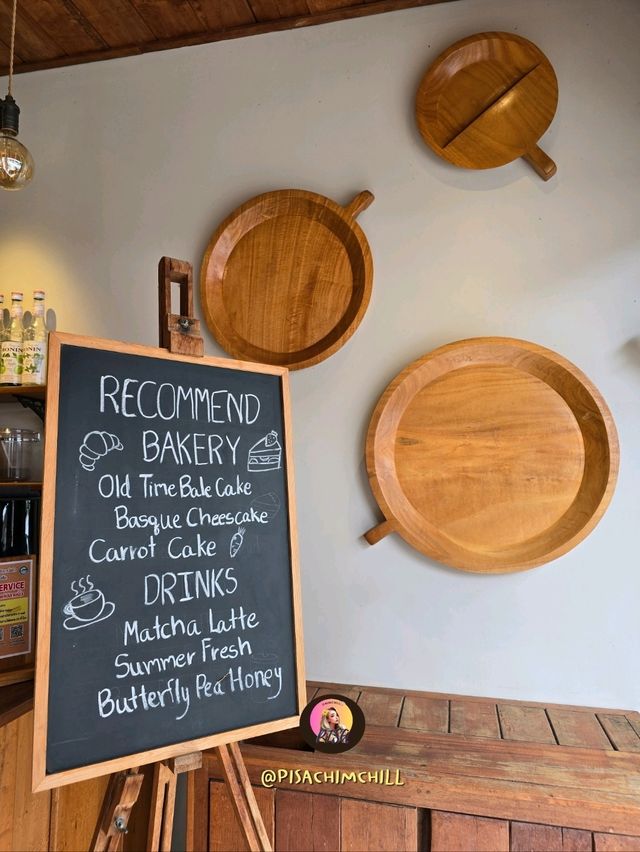 RECOMMEND
BAKERY
Old Time Bale Cake
Basque Cheescake
Carrot Cake
DRINKS
Matcha Latte
Summer Fresh
Butterfly Pea Honey
MONIN
ERVICE
@PISACHIMCHILL